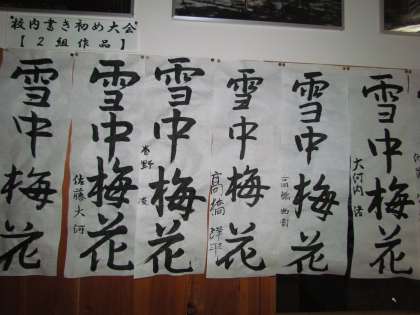 校内書き初め大会
【2組作品】
雪中梅花
雪中梅花
佐藤大河
雪中梅花
雪中梅花
高橋洋平
雪中梅花
雪中梅花
大河内